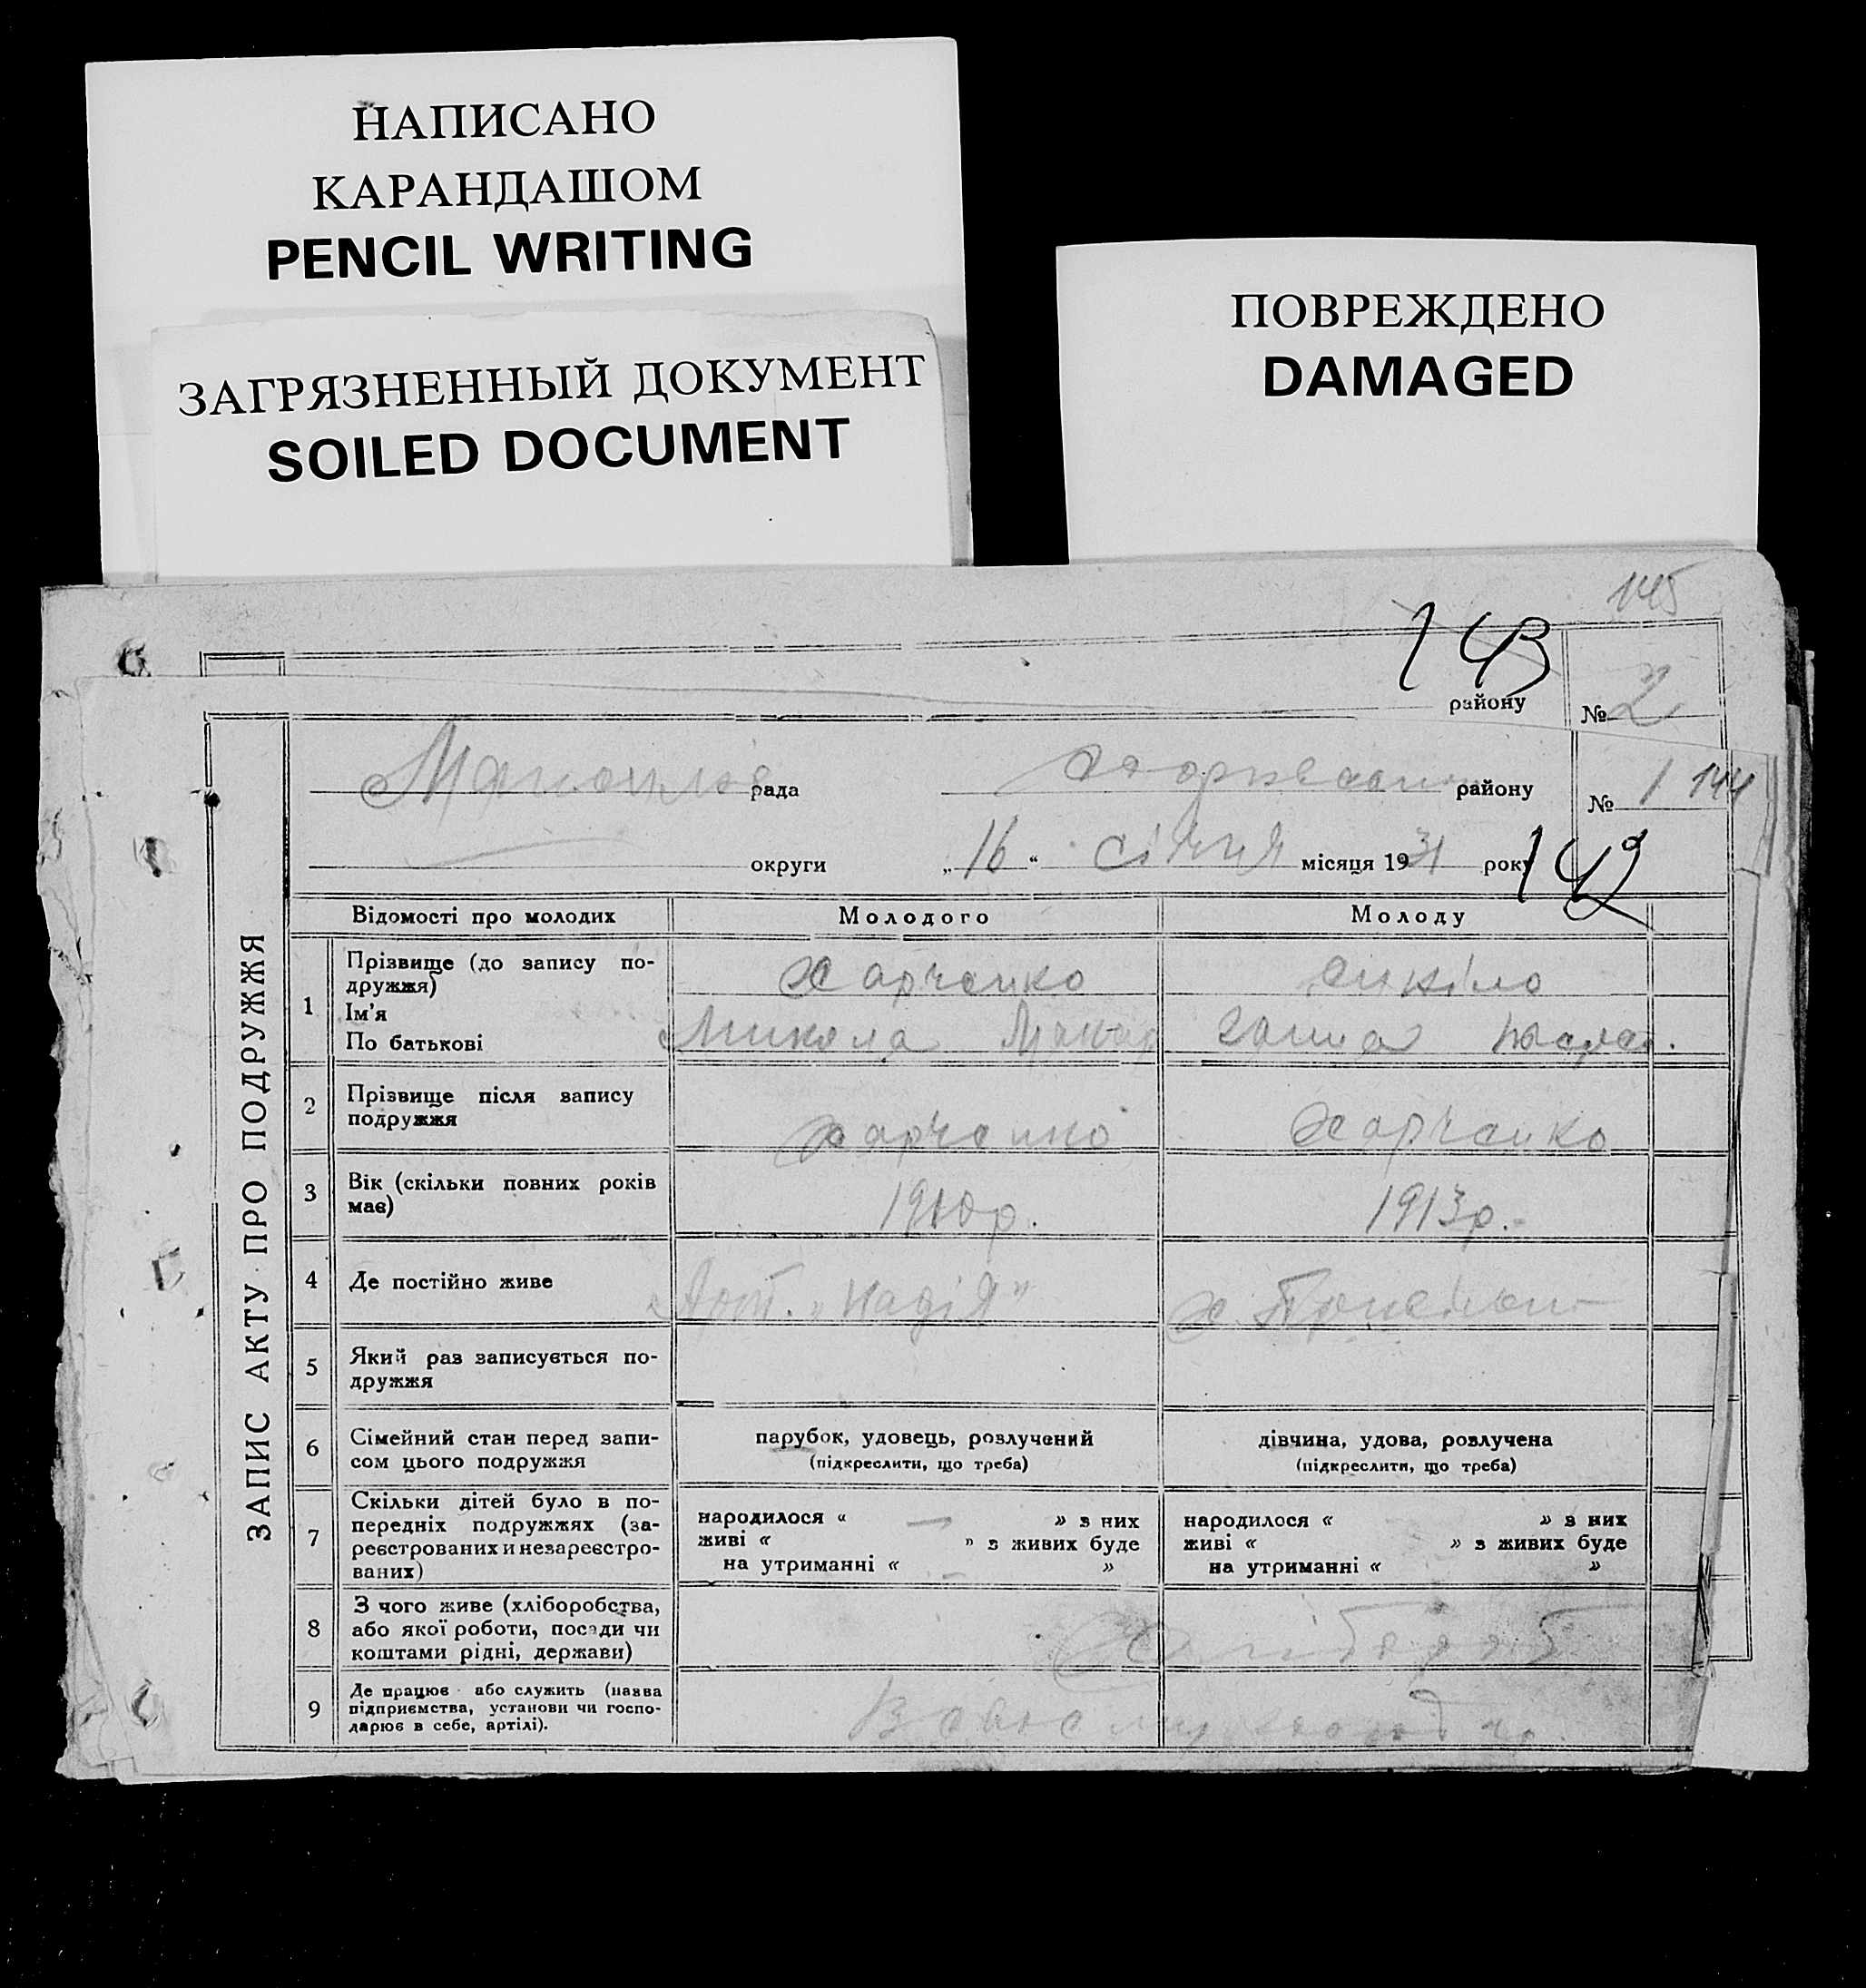 НАПИСАНО
КАРАНДАШОМ
PENCIL WRITING
ЗАГРЯЗНЕННЫЙ ДОКУМЕНТ
SOILED DOCUMENT
ПОВРЕЖДЕНО
DAMAGED
145
143
району № 2
рада району № 1 144
округи „16“ січня місяця 1931 року 142
ЗАПИС АКТУ ПРО ПОДРУЖЖЯ
Відомості про молодих Молодого Молоду
1 Прізвище (до запису по-
дружжя) Харченко
Ім'я
По батькові Микола Макар Ганна
2 Прізвище після запису
подружжя Харченко Харченко
3 Вік (скільки повних років
має) 1910р. 1913р.
4 Де постійно живе Арт. „Надія" х.
5 Який раз записується по-
дружжя
6 Сімейний стан перед запи-
сом цього подружжя
парубок, удовець, розлучений
(підкреслити, що треба)
дівчина, удова, розлучена
(підкреслити, що треба)
7 Скільки дітей було в по-
передніх подружжях (за-
реєстрованих и незареєстро-
ваних)
народилося « — » з них
живі « » з живих буде
на утриманні « — »
народилося « » з них
живі « » з живих буде
на утриманні « »
8 З чого живе (хліборобства,
або якої роботи, посади чи
коштами рідні, держави) Хлібороб
9 Де працює або служить (назва
підприємства, установи чи госпо-
дарює в себе, артілі).